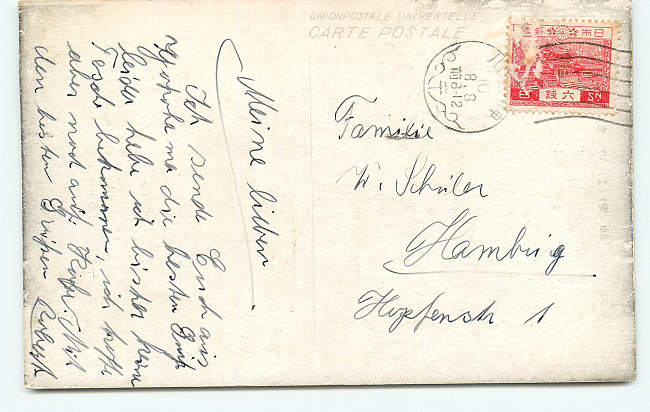 UNION POSTALE UNIVERSELLE
CARTE POSTALE
大日本帝國郵便
六銭
6 SN
Meine lieben
Ich sende Euch aus
Yokohama die besten Grüße
leider habe ich bisher keine
Post bekommen, ich hoffe
aber noch auf
den besten Grüßen Robert
Familie
W. Schüler
Hamburg
Hopfenstr 1